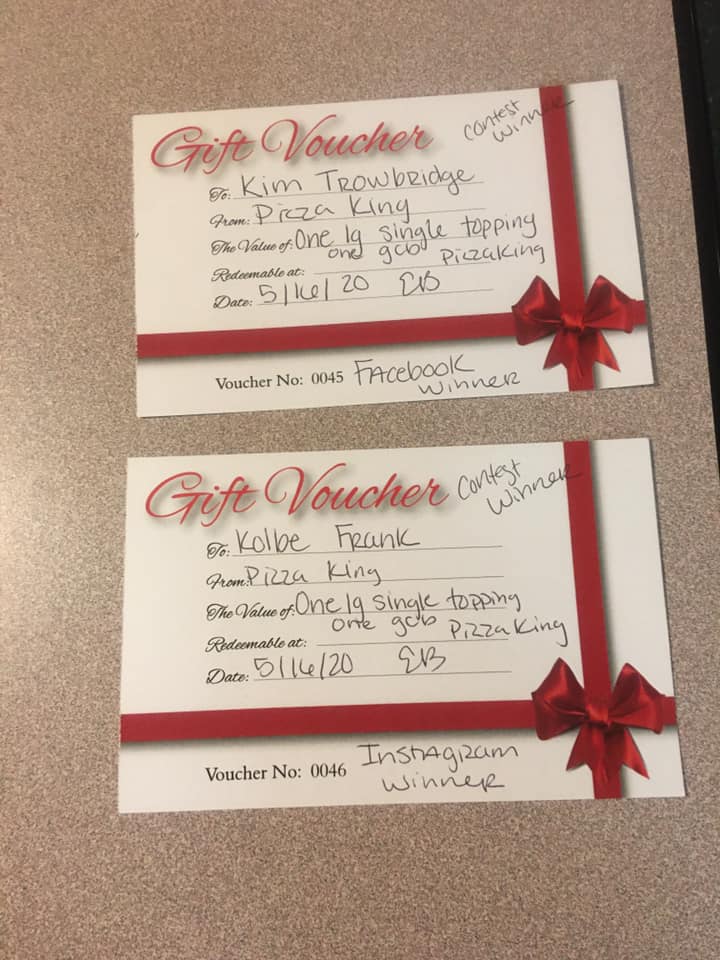 Gift Voucher
contest
winner
To: Kim Trowbridge
From: Pizza King
The Value of: One lg single topping
one gcb
Redeemable at: PizzaKing
Date: 5/16/20 EB
Voucher No: 0045 Facebook
winner
Gift Voucher
contest
winner
To: Kolbe Frank
From: Pizza King
The Value of: One lg single topping
one gcb
Redeemable at: Pizza King
Date: 5/16/20 EB
Voucher No: 0046 Instagram
winner